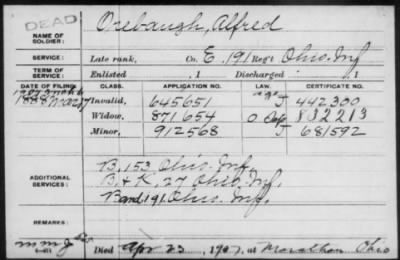 DEAD
Orebaugh, Alfred
NAME OF SOLDIER:
SERVICE: Late rank, Co. E, 191 Reg't Ohio. Inf
TERM OF SERVICE: Enlisted , 1 Discharged , 1
DATE OF FILING. CLASS. APPLICATION NO. LAW. CERTIFICATE NO.
1888 Invalid, 645651 J 442300
Widow, 871654 832213
Minor, 912568 J 681592
ADDITIONAL SERVICES:
B, 153 Ohio. Inf.
B. & K, 27 Ohio. Inf.
Band 191. Ohio. Inf.
REMARKS:
Died Apr 23, 1907, at Marathon Ohio